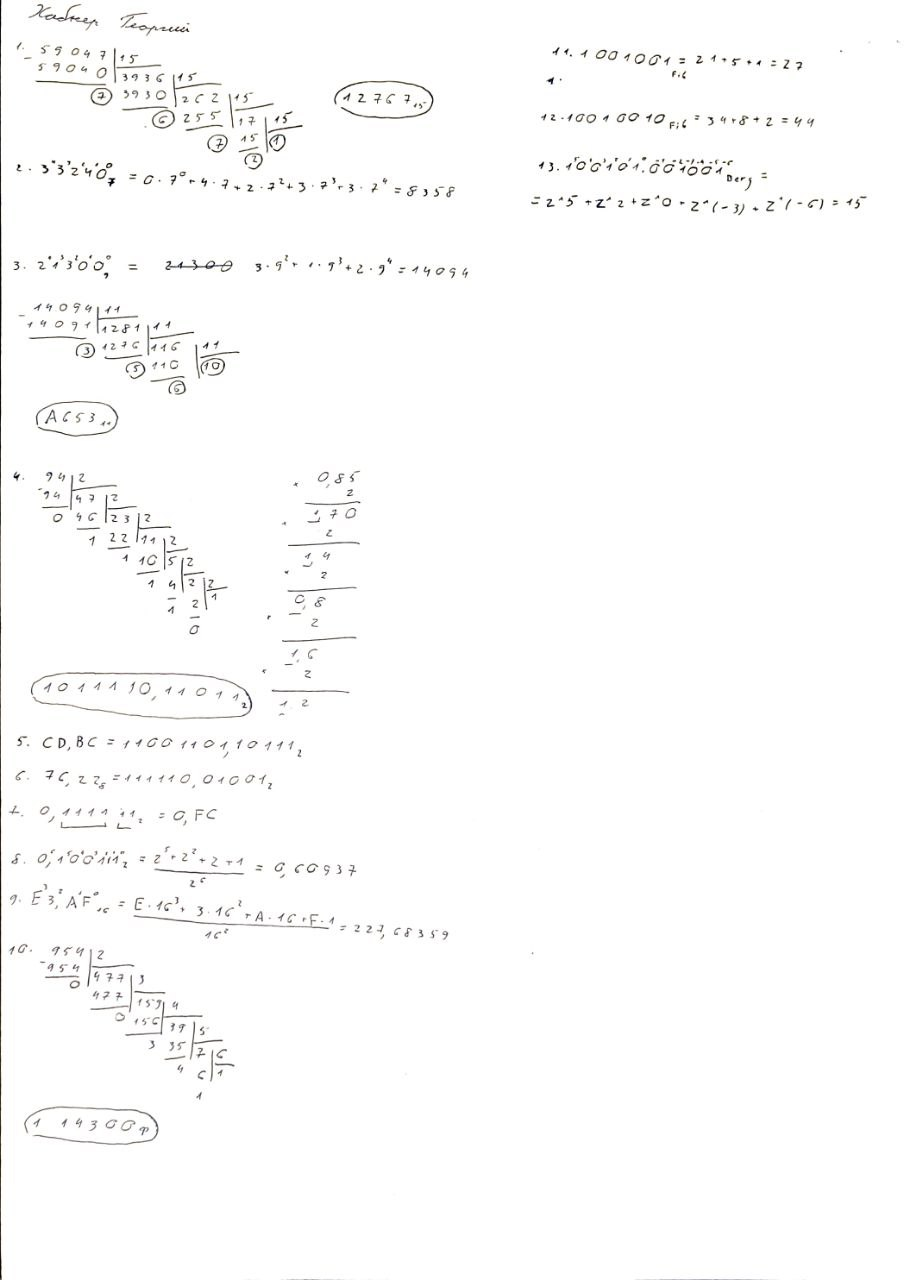 Хабнер Георгий
1. 59047 | 15
- 59040 | 3936 | 15
7 3930 | 262 | 15
6 255 | 17 | 15
7 15 | 1
2
12767₁₅
2. 33240₇ = 0 · 7⁰ + 4 · 7 + 2 · 7² + 3 · 7³ + 3 · 7⁴ = 8358
3. 21300₉ = 21300 3 · 9² + 1 · 9³ + 2 · 9⁴ = 14094
- 14094 | 11
14091 | 1281 | 11
3 1276 | 116 | 11
5 110 | 10
6
A653₁₁
4. 94 | 2
- 94 | 47 | 2
0 46 | 23 | 2
1 22 | 11 | 2
1 10 | 5 | 2
1 4 | 2 | 2
1 2 | 1
0
× 0,85
2
× 1 70
2
1 4
× 2
0,8
× 2
1,6
× 2
1 2
1011110,11011₂
5. CD,BC = 11001101,10111₂
6. 76,22₈ = 111110,01001₂
7. 0,1111 11₂ = 0,FC
8. 0,100111₂ = 2⁵ + 2² + 2 + 1 / 2⁶ = 0,60937
9. E3,AF₁₆ = E · 16³ + 3 · 16² + A · 16 + F · 1 / 16² = 227,68359
10. 954 | 2
- 954 | 477 | 3
0 477 | 159 | 4
0 156 | 39 | 5
3 35 | 7 | 6
4 6 | 1
1
1 14300ф
11. 1001001 Fib = 21 + 5 + 1 = 27
1.
12. 10010010 Fib = 34 + 8 + 2 = 44
13. 100101.001001 Berg =
= 2^5 + 2^2 + 2^0 + 2^(-3) + 2^(-6) = 15